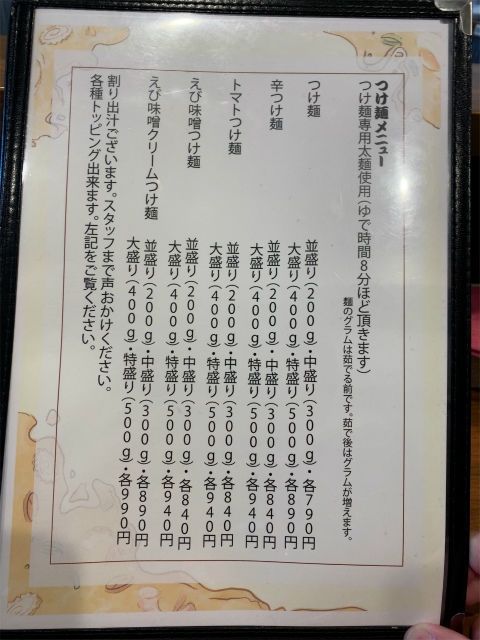 つけ麺メニュー
つけ麺専用太麺使用(ゆで時間8分ほど頂きます)
麺のグラムは茹でる前です。茹で後はグラムが増えます。
つけ麺 並盛り(200g)・中盛り(300g)・各790円
大盛り(400g)・特盛り(500g)・各890円
辛つけ麺 並盛り(200g)・中盛り(300g)・各840円
大盛り(400g)・特盛り(500g)・各940円
トマトつけ麺 並盛り(200g)・中盛り(300g)・各840円
大盛り(400g)・特盛り(500g)・各940円
えび味噌つけ麺 並盛り(200g)・中盛り(300g)・各840円
大盛り(400g)・特盛り(500g)・各940円
えび味噌クリームつけ麺 並盛り(200g)・中盛り(300g)・各890円
大盛り(400g)・特盛り(500g)・各990円
割り出汁ございます。スタッフまで声おかけください。
各種トッピング出来ます。左記をご覧ください。